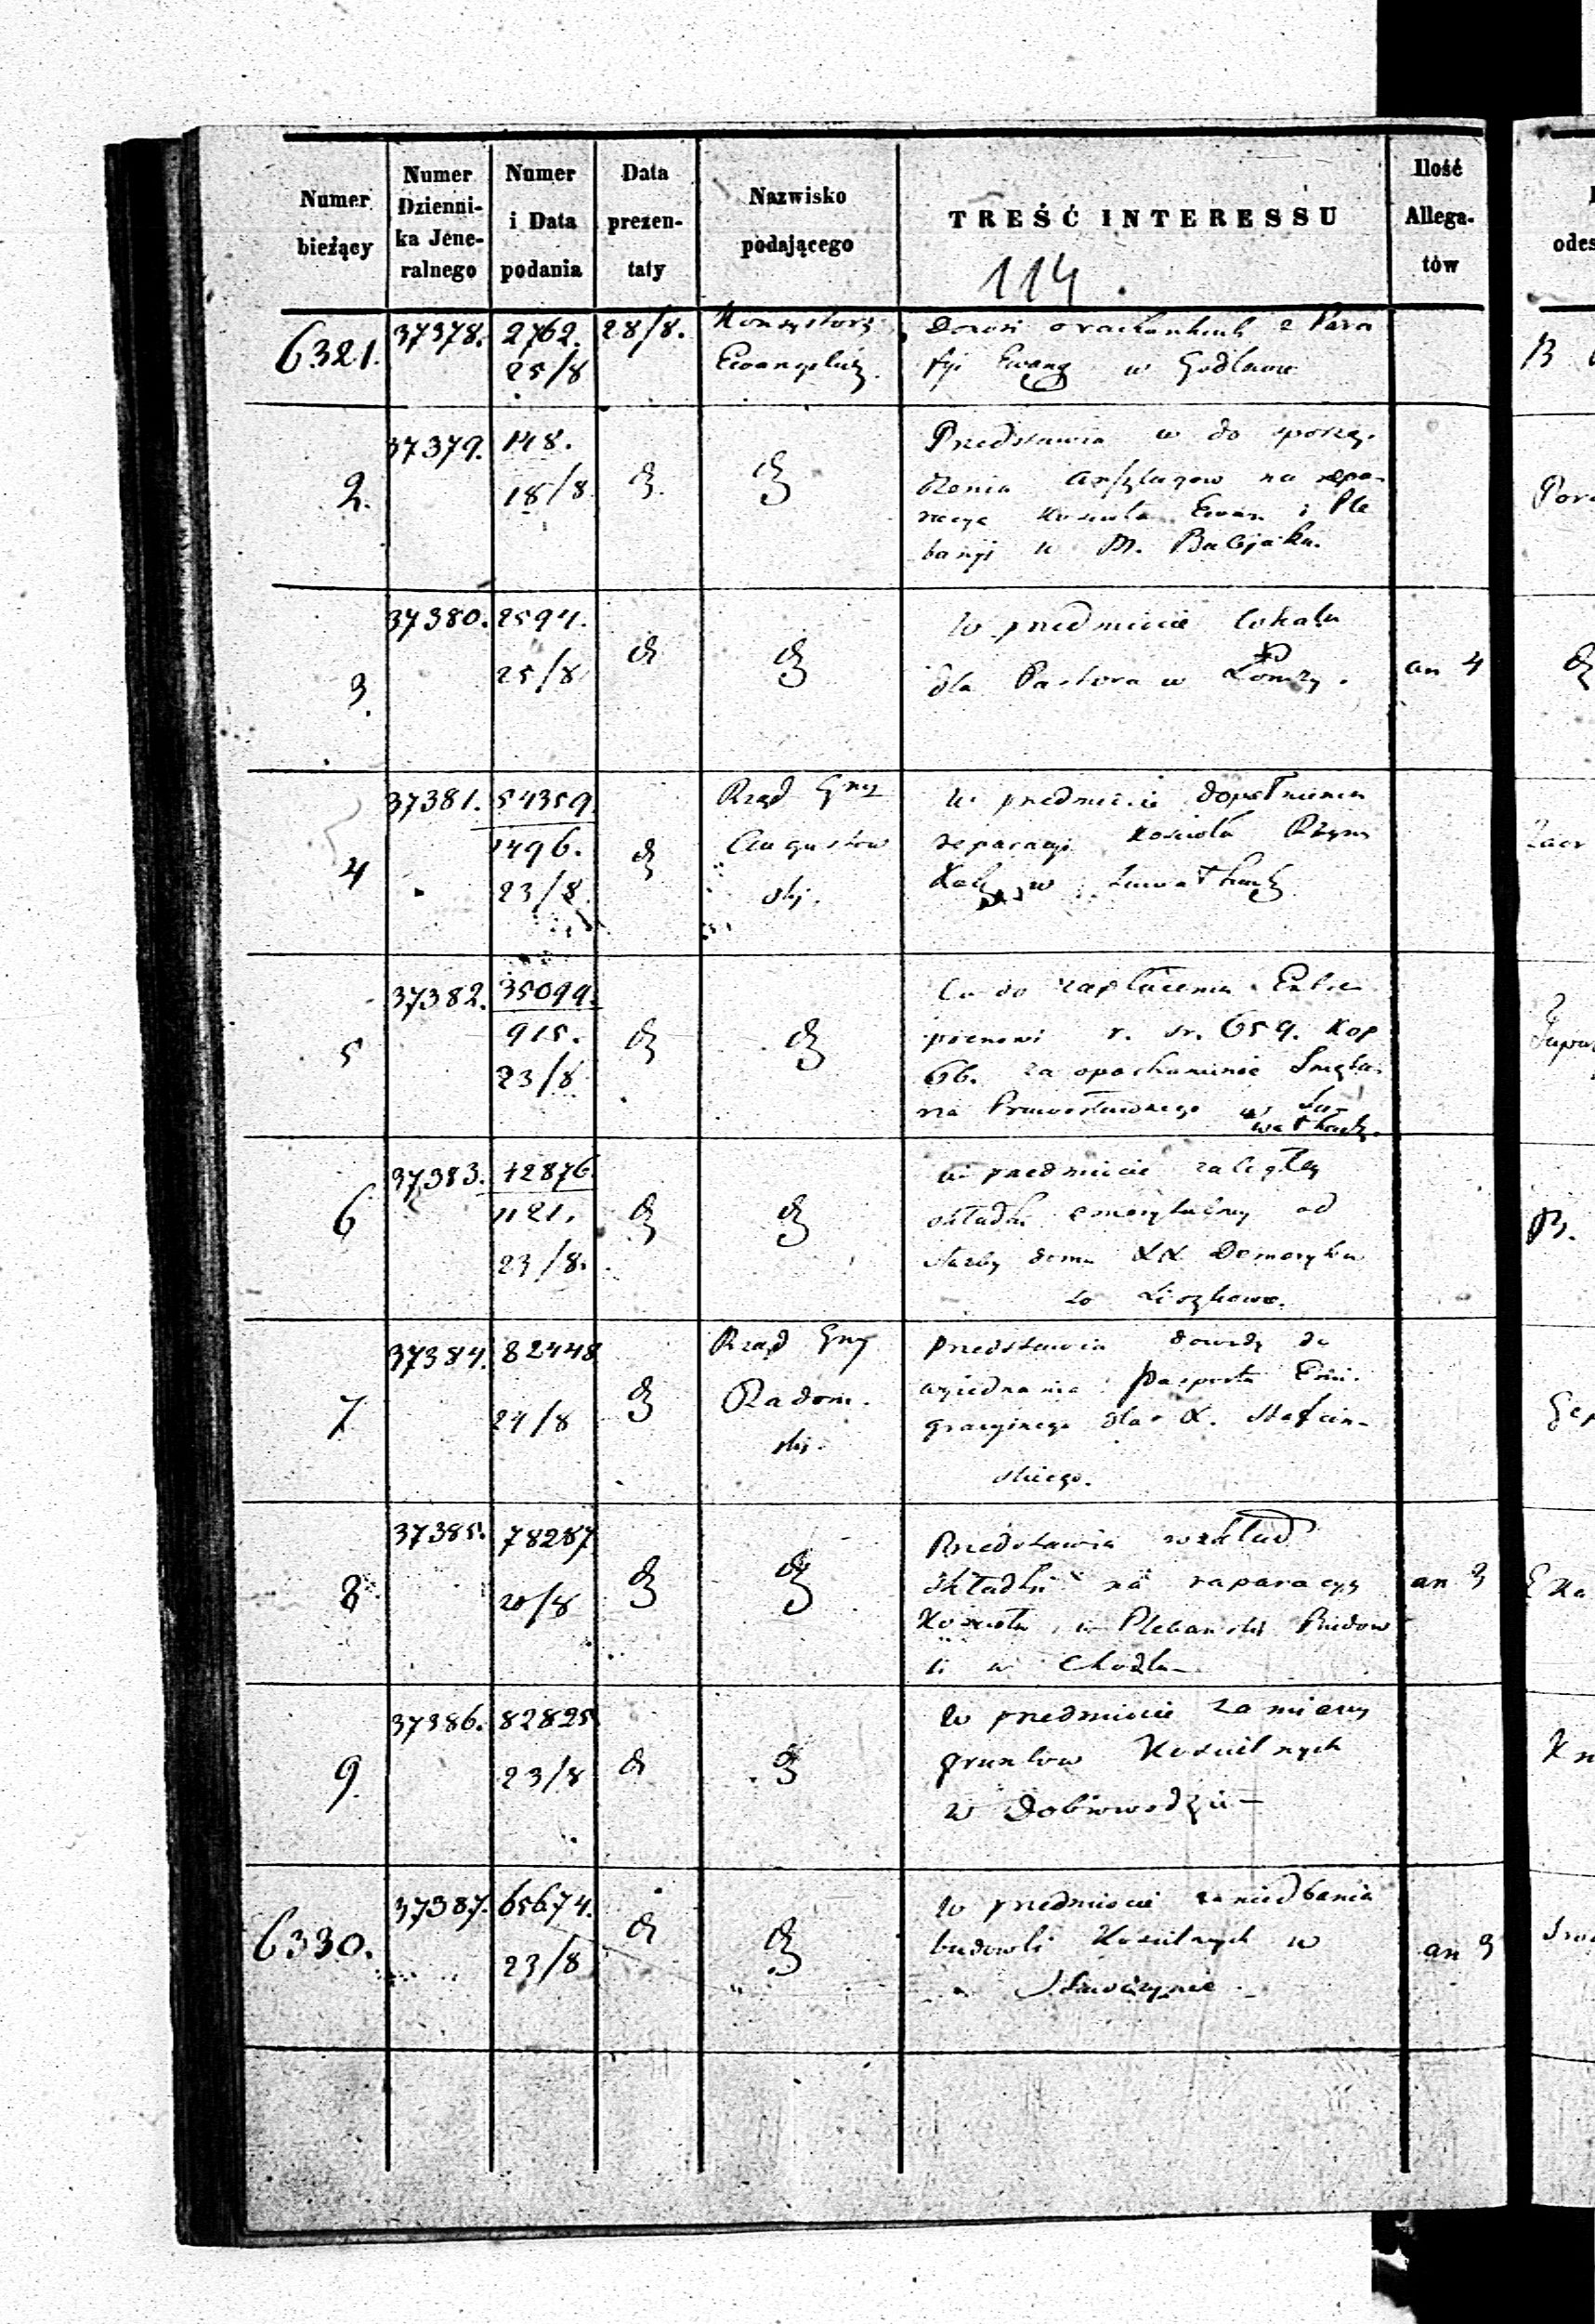 Numer bieżący
Numer Dzienni- ka Jene- ralnego
Numer i Data podania
Data prezen- taty
Nazwisko podającego
TREŚĆ INTERESSU
Ilość Allega- tów
114.
6321.
37378.
2762.
25/8
28/8.
Konsystorz
Ewangelicz.
Donosi o rachunkach z Para
fji Ewang w Godlewie
2.
37379.
148.
18/8
Przedstawia w do sporzą-
dzenia anszlagow na repa-
racye Kosciola Ewan i Ple
banji w M. Babijaku.
3.
37380.
2594.
25/8
W przedmiocie lokalu
dla Pastora w Łomży.
an 4
4
37381.
54359.
1496.
23/8
Rząd Gny
Augustow
ski.
W przedmiocie dopełnienia
reparacyi Kosciola Rzym
Kat w Suwałkach
5
37382.
35099.
915.
23/8
Co do zapłacenia
r. sr. 659. Kop
66. za
Prawosławnego w Su-
wałkach.
6
37383.
42876.
1121.
23/8.
W przedmiocie zaległej
składki emerytalnej od
XX
w Liszkowo.
7
37384.
82448
24/8
Rząd Gny
Radom.
ski.
Przedstawia dowody do
wyjednania paszportu Emi-
gracyjnego dla X.
skiego.
8
37385.
78287
20/8
Przedstawia rozkład
składki na reparacyę
Kosciola i Plebanski Budow
li w Chodlu
an 3
9.
37386.
82825
23/8
W przedmiocie zamiany
gruntow Koscielnych
w Dobrowodzie
6330.
37387.
65674.
23/8
W przedmiocie zaniedbania
budowli Koscielnych w
an 3
odes
B
Por
B.